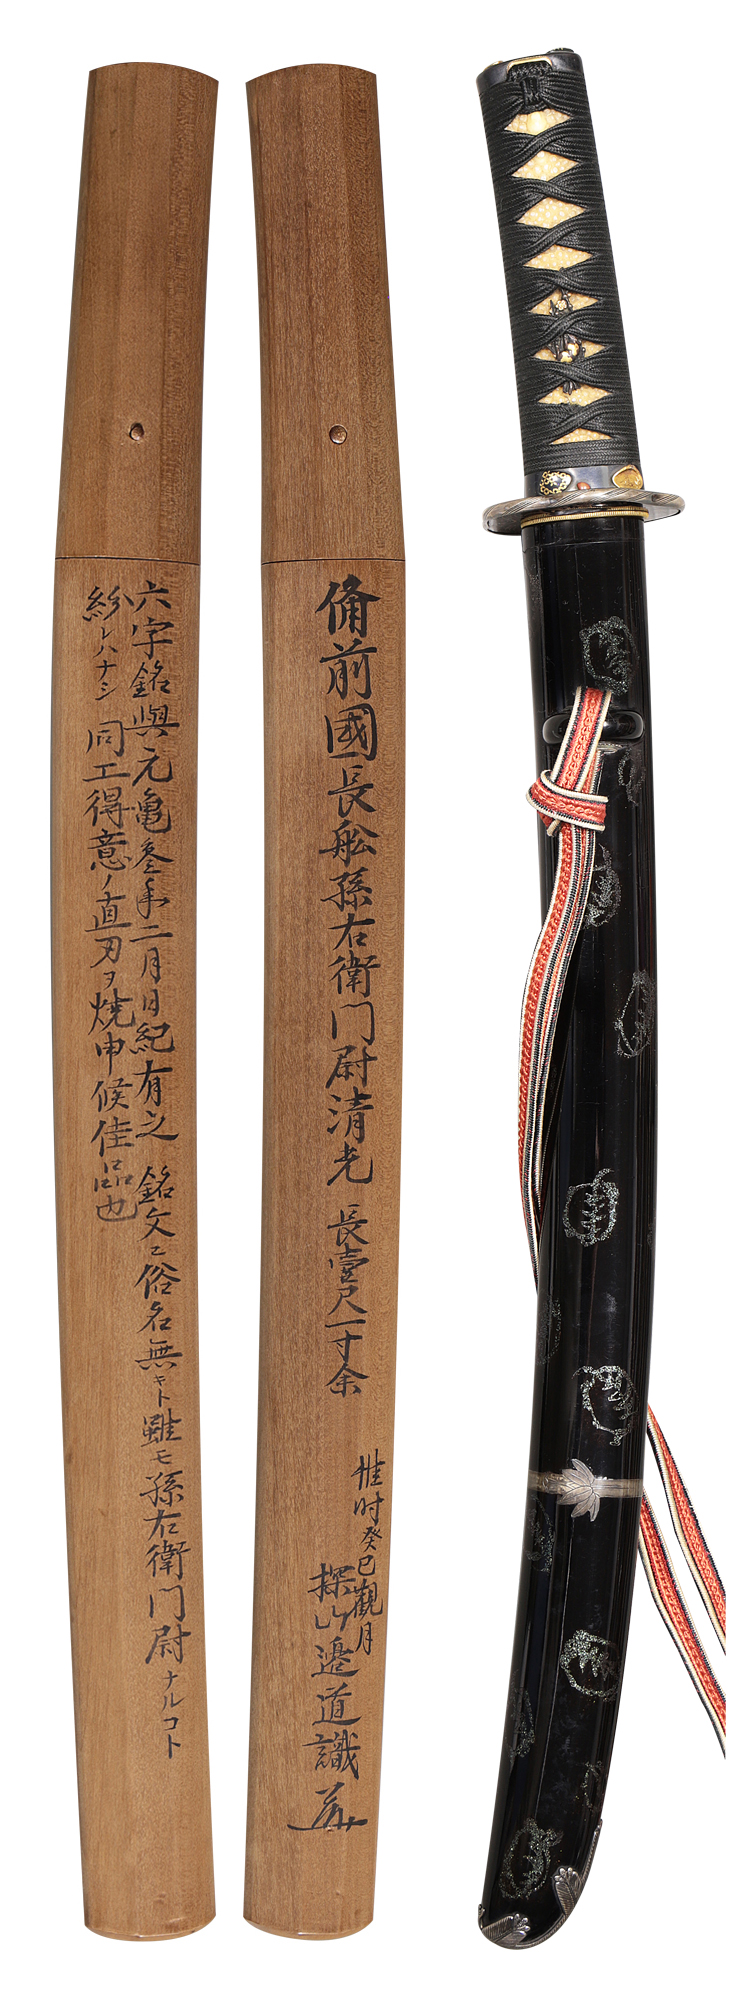 備前國長舩孫右衛門尉清光 長壹尺一寸余
惟时癸巳觀月
探山邉道識
六字銘與元亀叄年二月日紀有之 銘文ニ俗名無キト雖モ孫右衛門尉ナルコト
紛レハナシ 同工得意ノ直刃ヲ焼申候佳品也